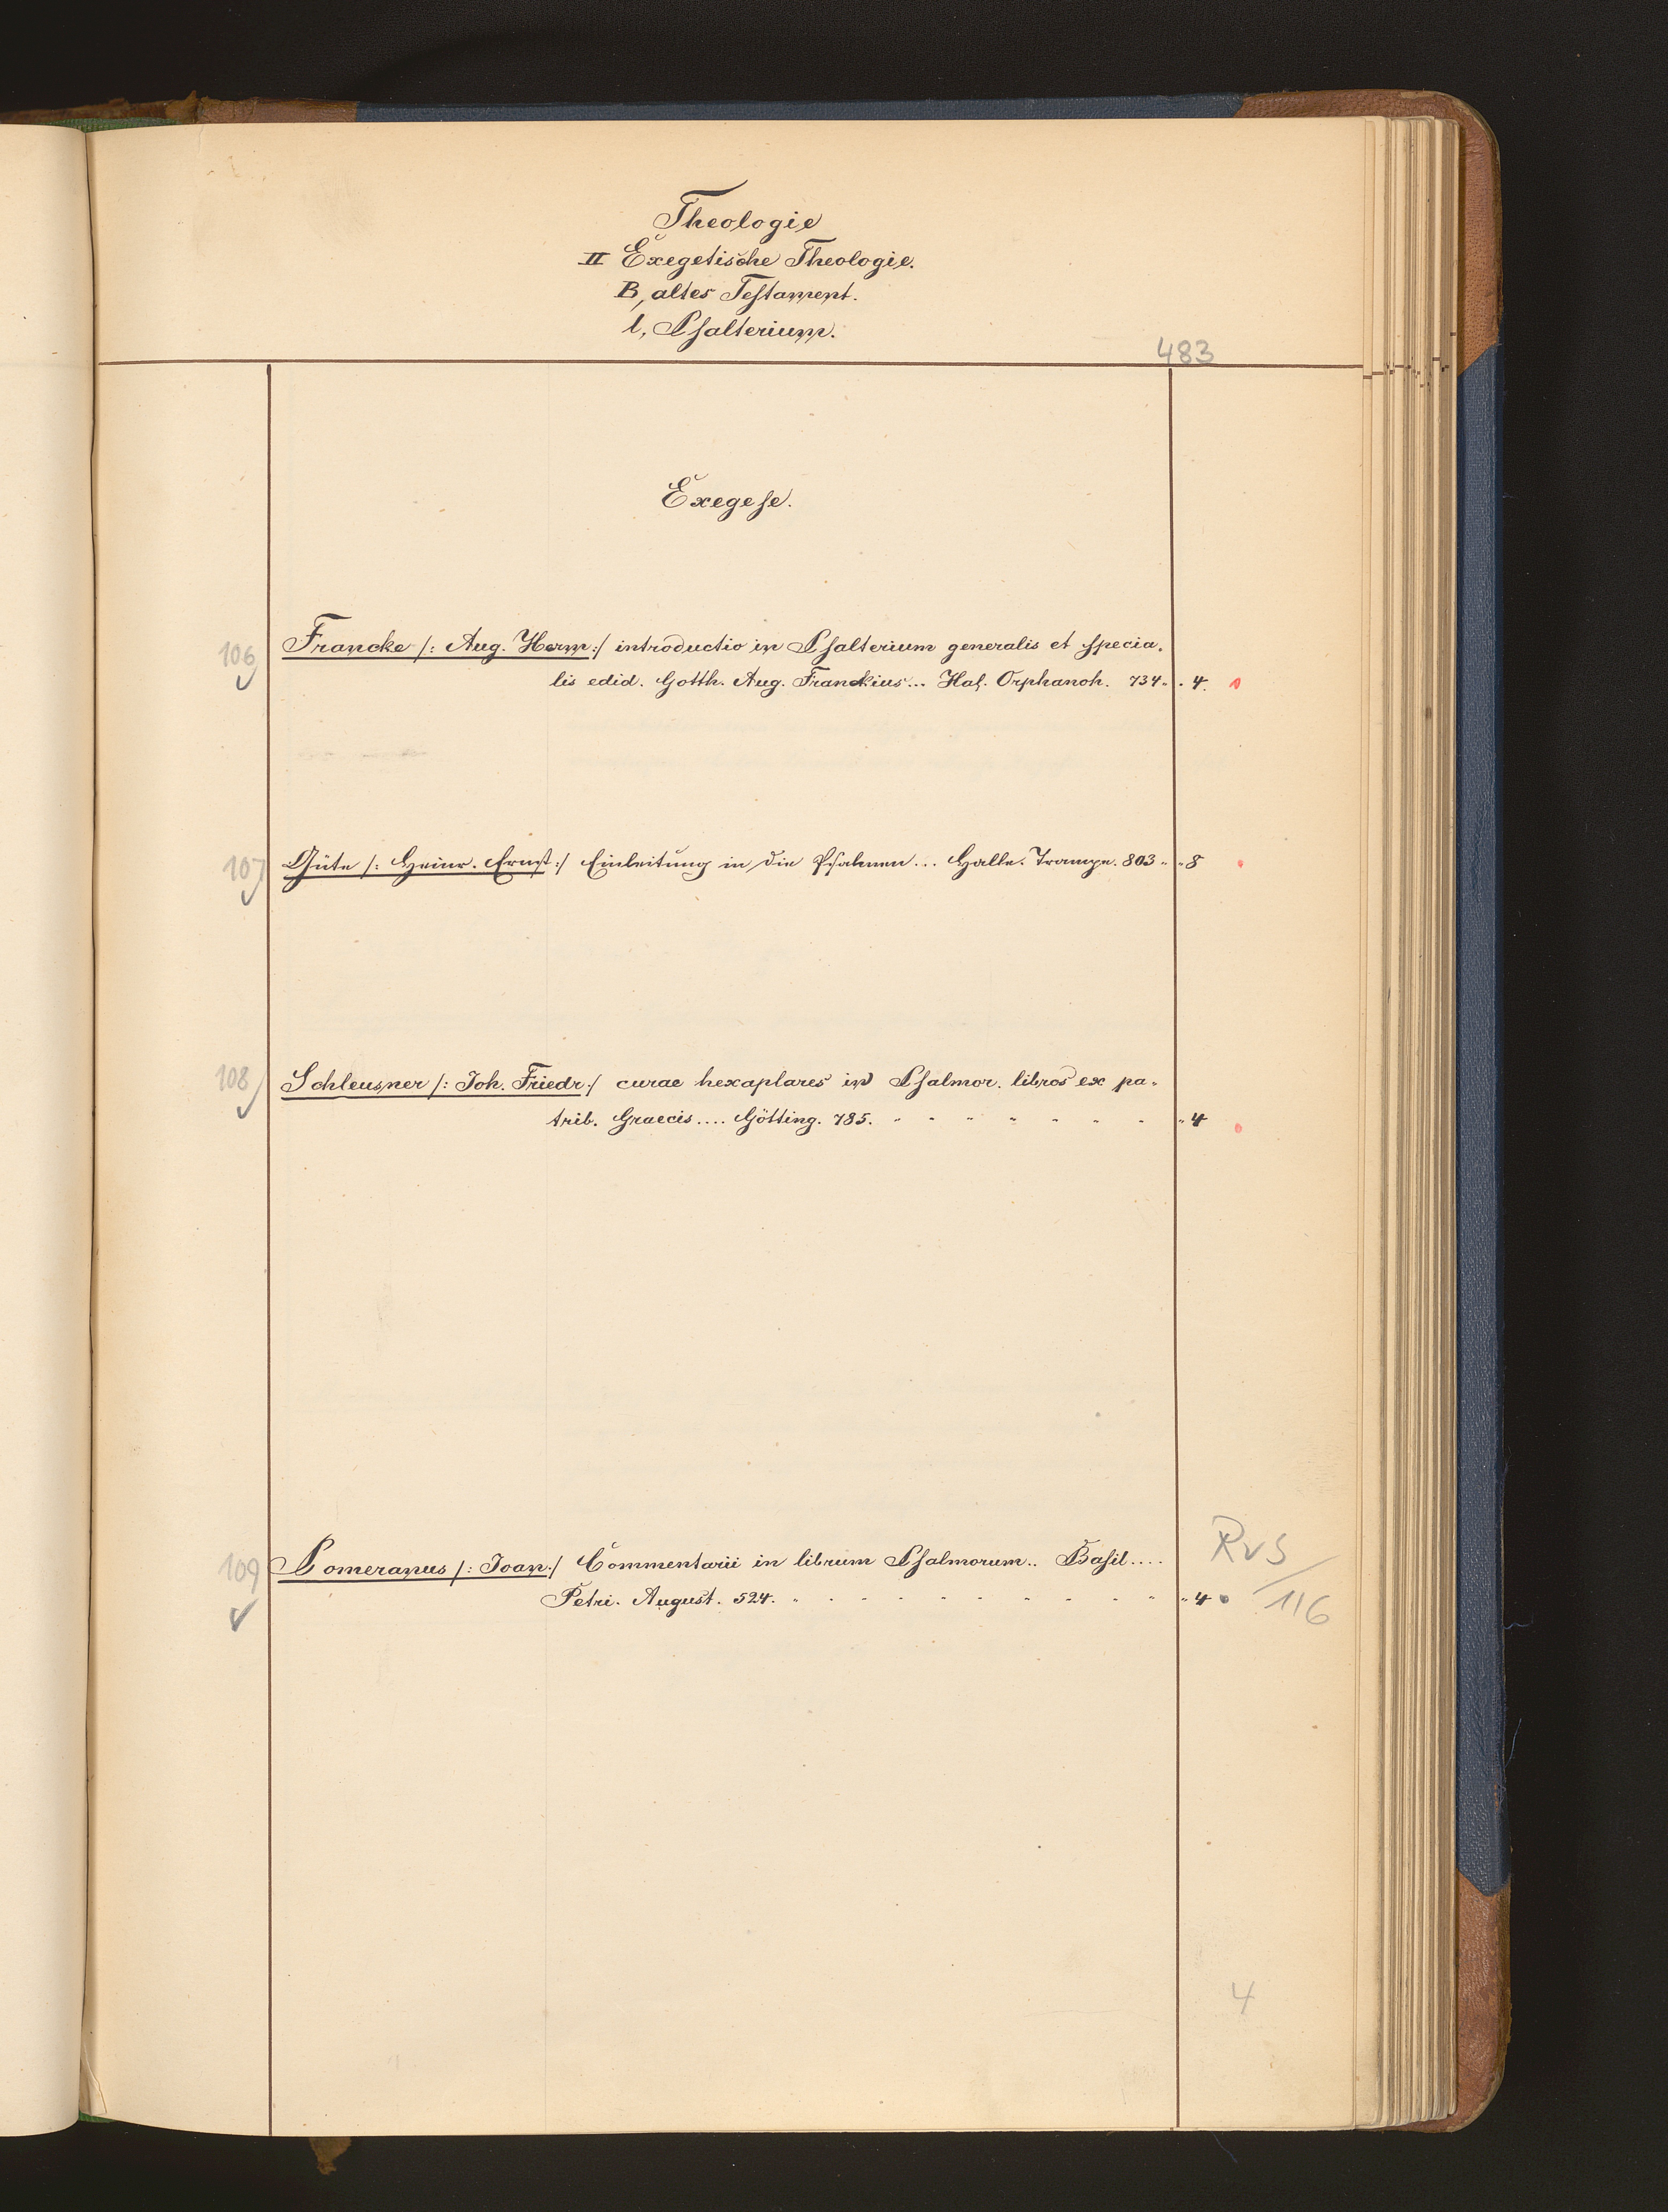 Theologie
II Exegetische Theologie.
B, altes Testament.
l, Psalterium.
483
Exegese.
106 Francke /: Aug. Herm :/ introductio in Psalterium generalis et specia-
lis edid. Gotth. Aug. Franckius... Hal. Orphanoh. 734. . 4.
107 Güte /: Heinr. Ernst :/ Einleitung in die Psalmen... Halle. Trampe. 803 " " 8
108 Schleusner /: Joh. Friedr :/ curae hexaplares in Psalmor. libros ex pa-
trib. Graecis.... Götting. 785. " " " " " " " " 4
109 Pomeranus /: Joan :/ Commentarii in librum Psalmorum.. Basil....
Petri. August. 524. " " " " " " " " " " 4
RvS
116
4